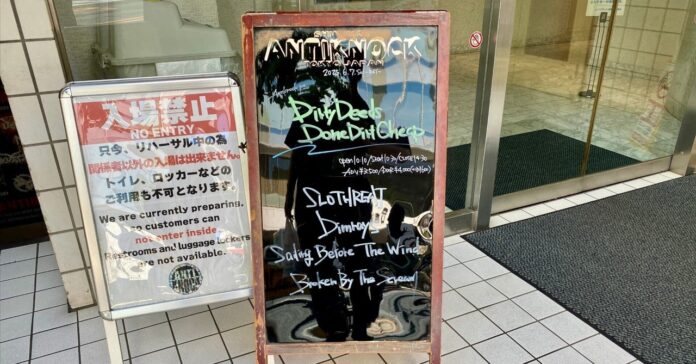 入場禁止
NO ENTRY
只今、リハーサル中の為
関係者以外の入場は出来ません。
トイレ、ロッカーなどの
ご利用も不可となります。
We are currently preparing.
so customers can
not enter inside
Restrooms and luggage lockers
are not available.
ANTI
KNOCK
ANTIKNOCK
TOKYO JAPAN
Dirty Deeds
Done Dirt Cheap
SLOTHREAT
Sailing Before The Wind
Broken By The Scream